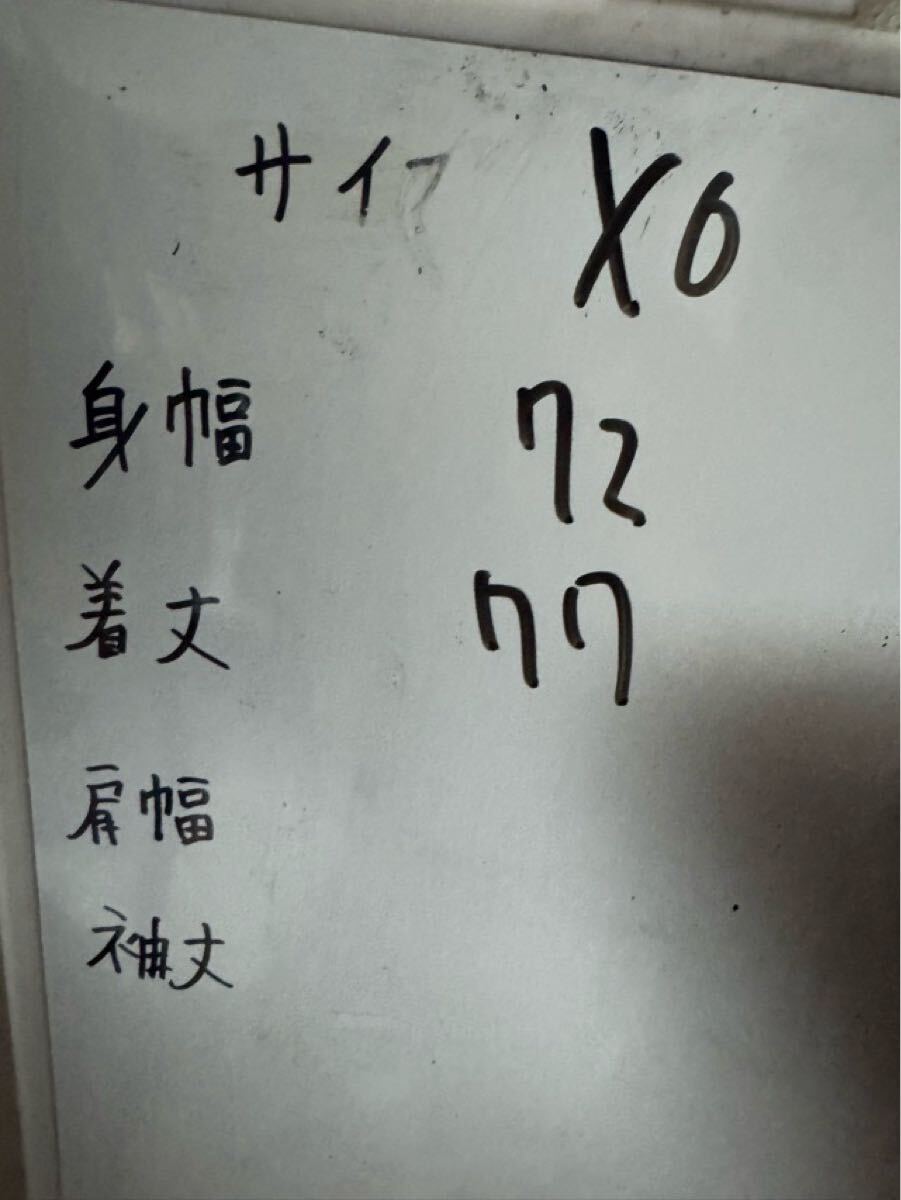 サイズ XO
身幅 72
着丈 77
肩幅
袖丈